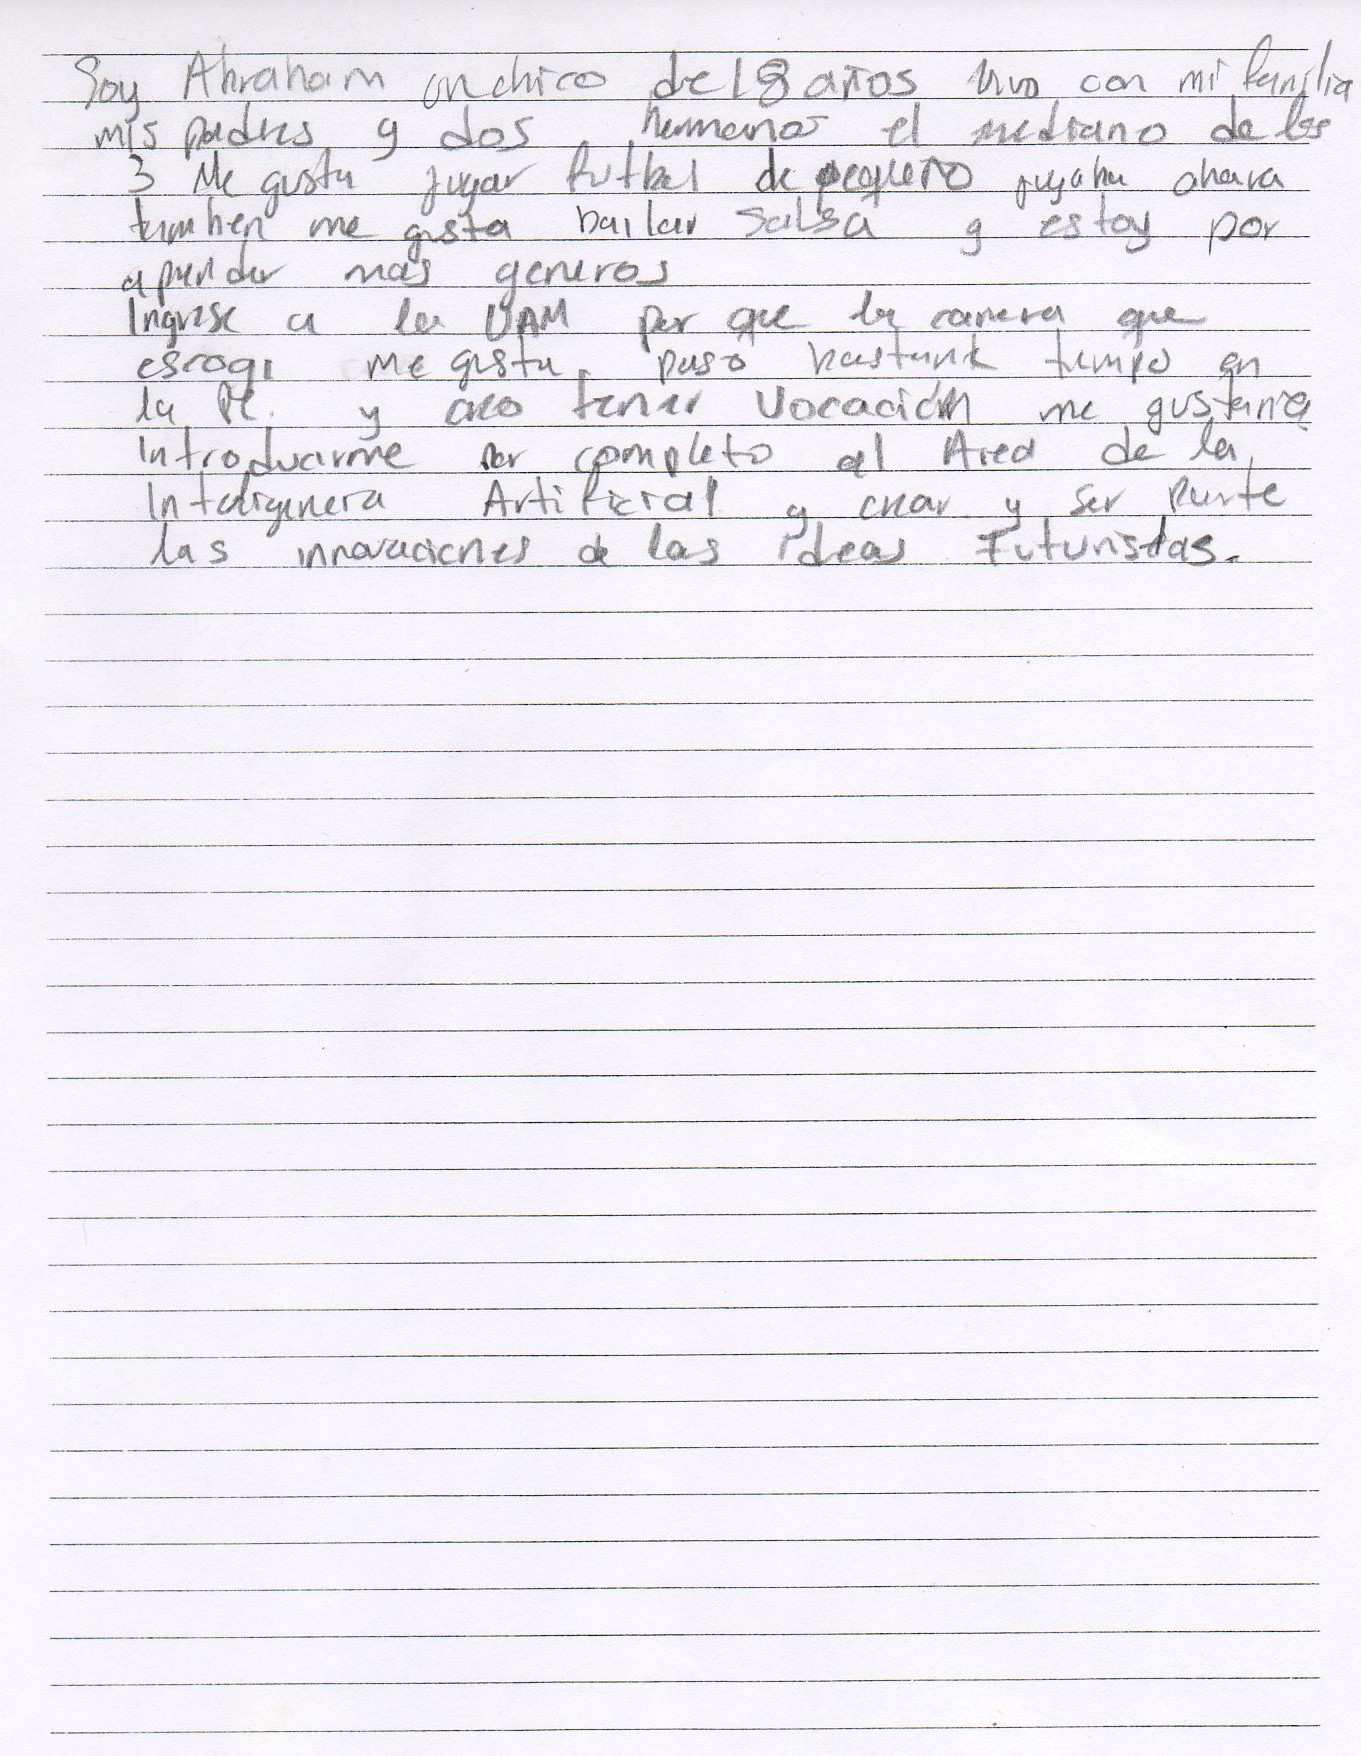 Soy Abraham un chico de 18 años vivo con mi familia
mis padres y dos hermanos el mediano de los
3 Me gusta jugar futbol de pequeño jugaba ahora
tambien me gusta bailar salsa y estoy por
aprender mas generos
Ingrese a la UAM por que la carrera que
escogi me gusta, paso bastante tiempo en
la PC. y creo tener vocación me gustaria
Introducirme por completo al Area de la
Inteligencia Artificial y crear y ser parte
las innovaciones de las ideas Futuristas.